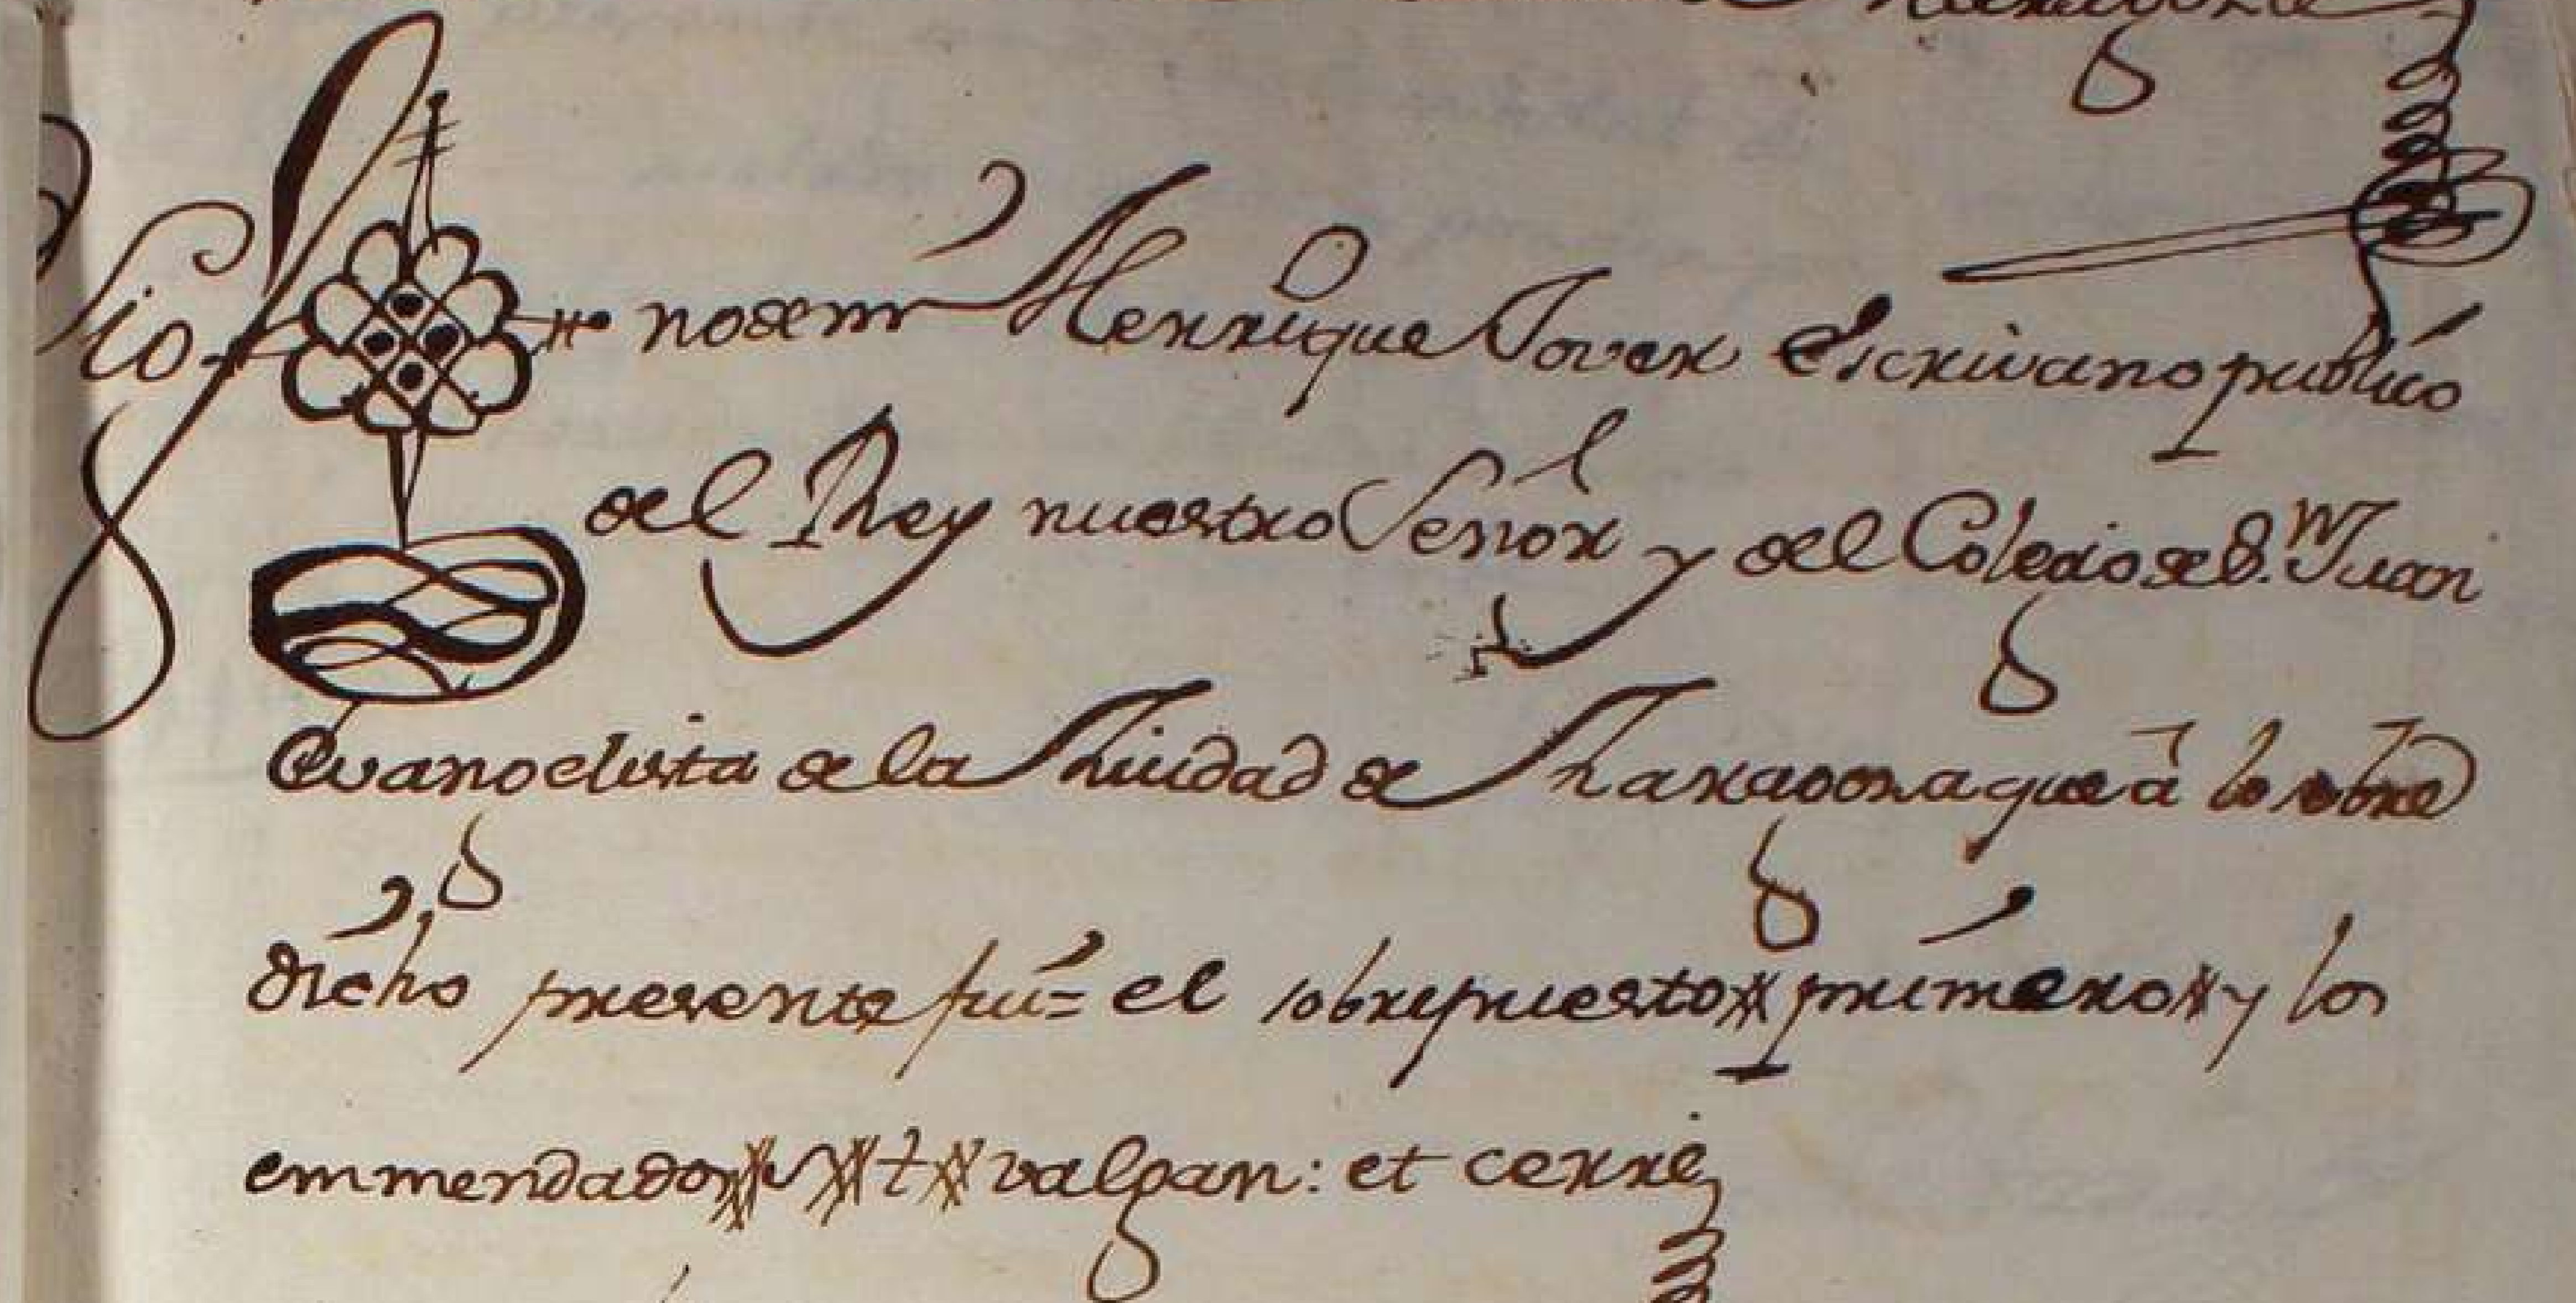 Sig no de mi Henrrique Tover Escrivano publico
del Rey nuestro Señor y del Colegio de S.n Juan
Evangelista de la Ciudad de Zaragoza que á lo sobre
dicho presente fui = el sobrepuesto primero y los
emmendados t valgan : et cerre